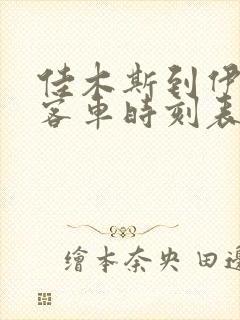 佳木斯到伊
客車時刻表
繪本奈央 田邊